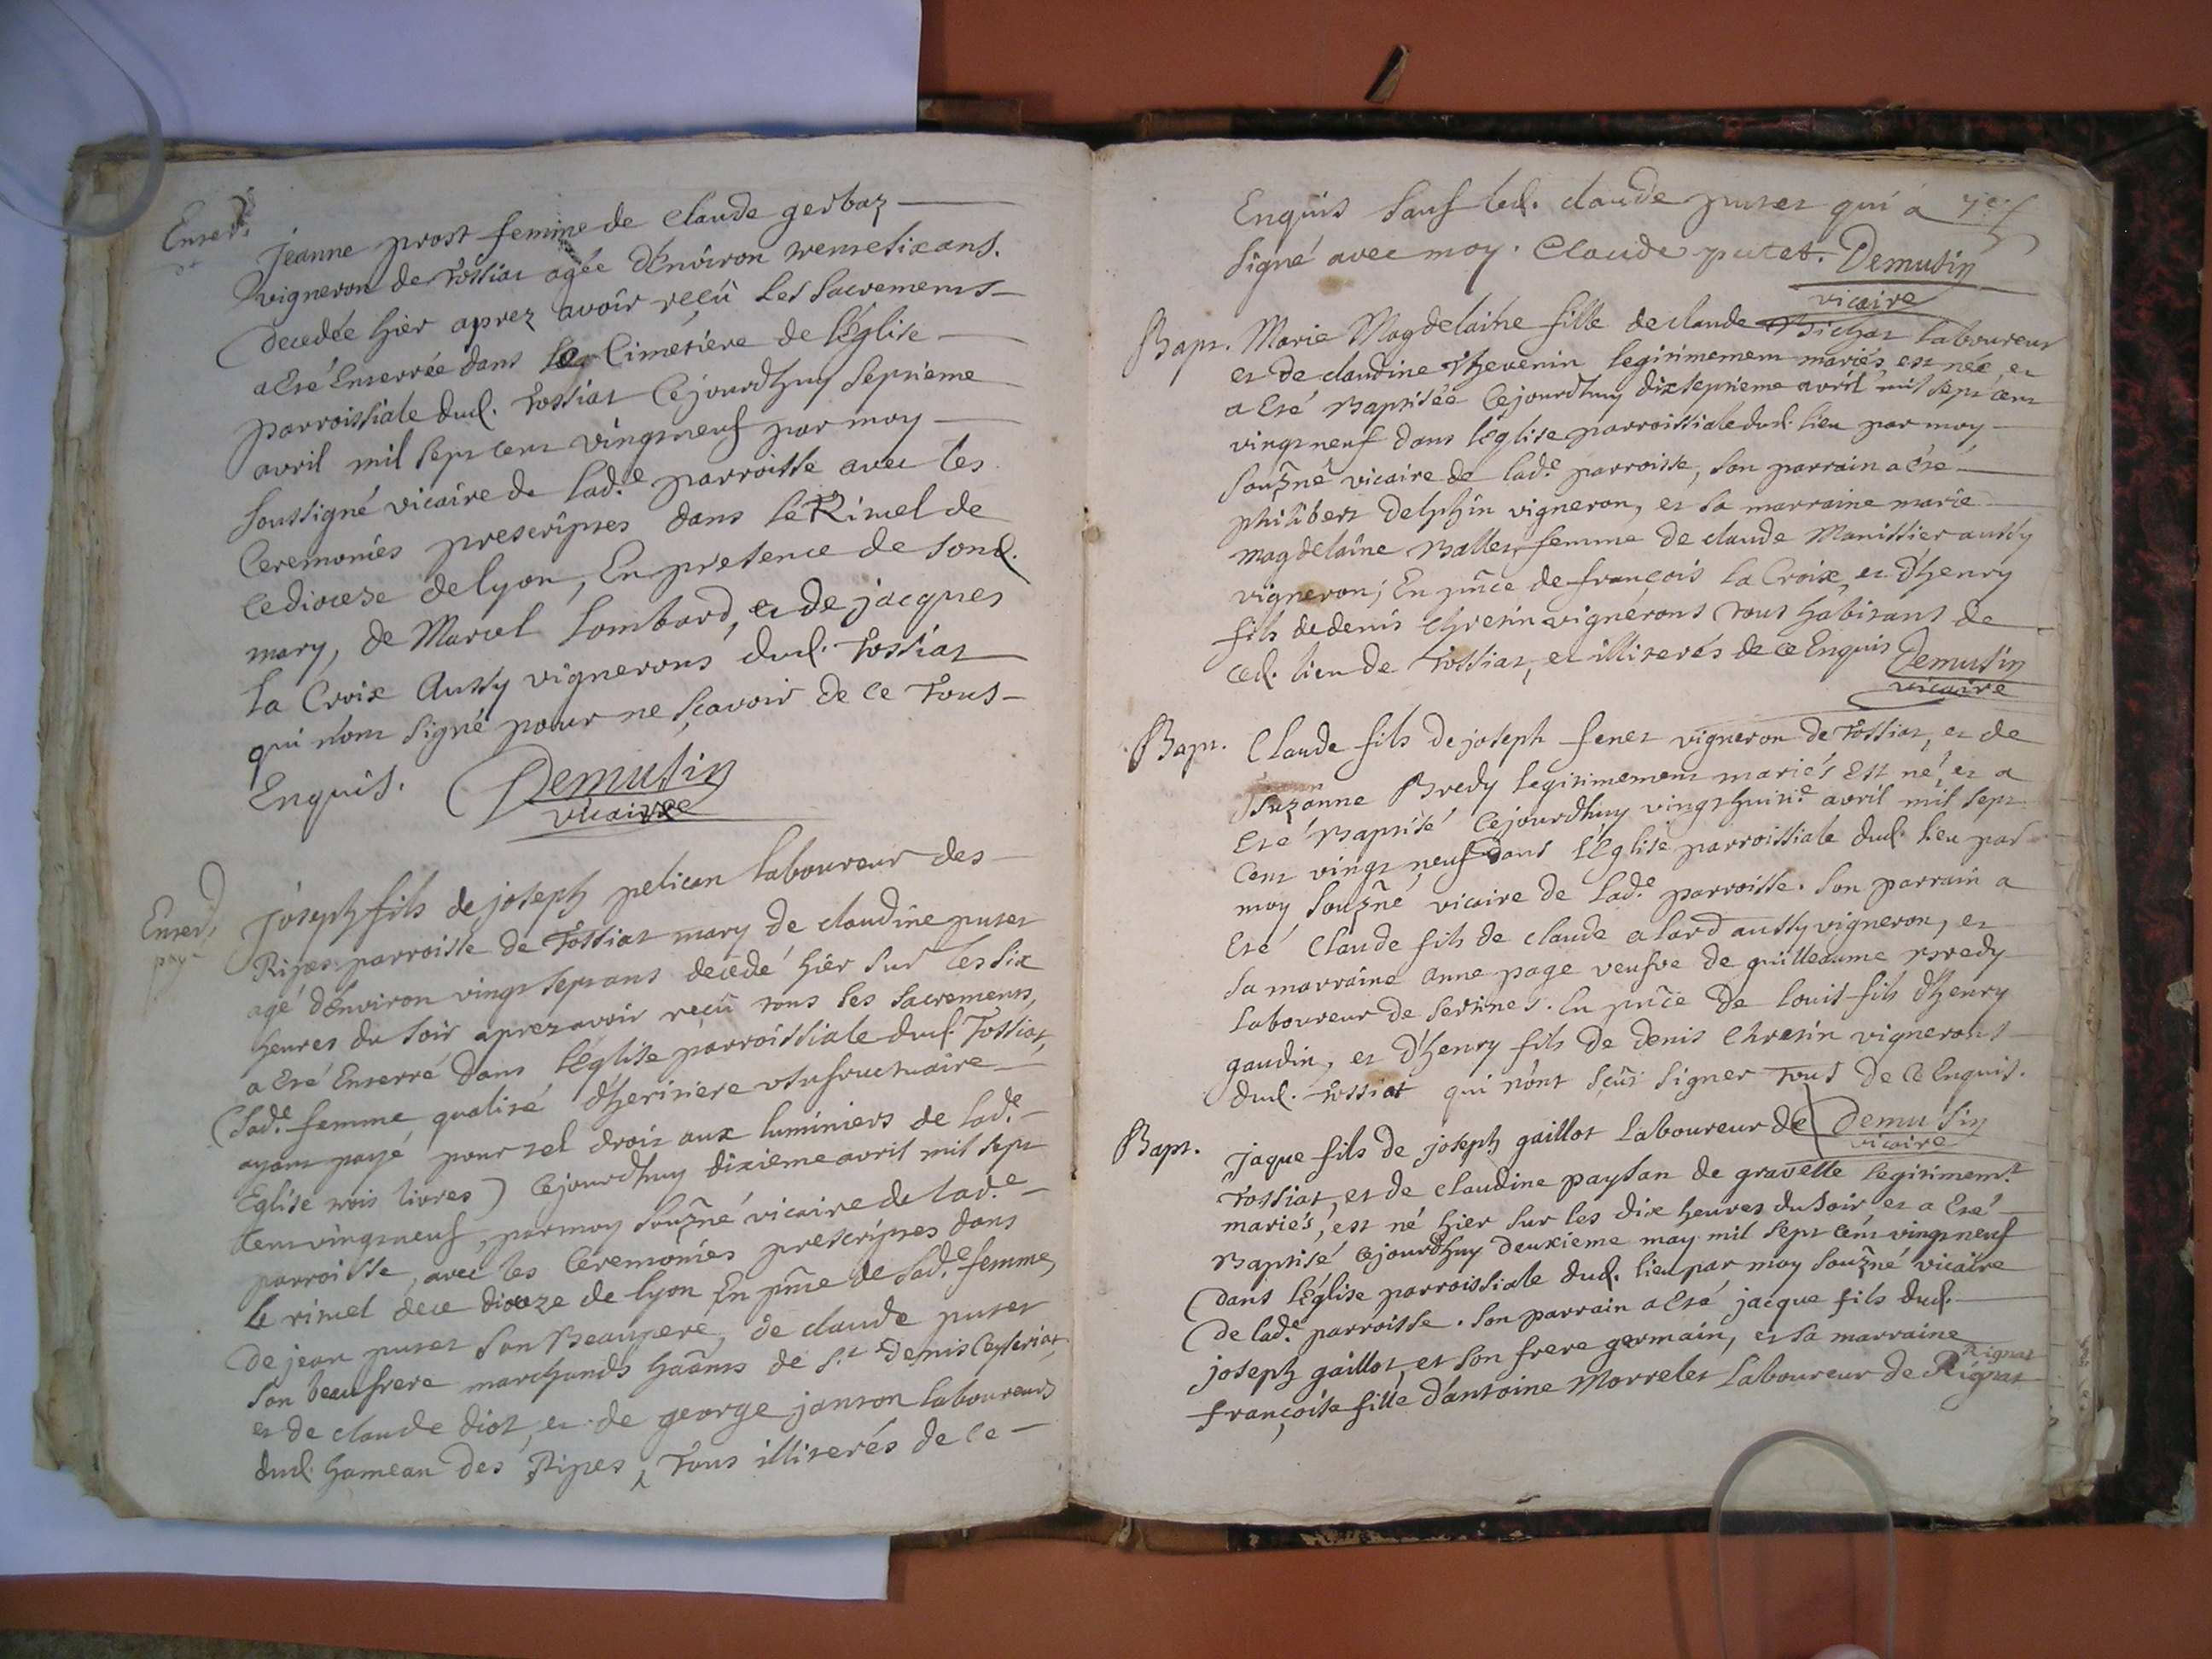 Enterr.
jeanne prost femme de Claude gerbaz
vigneron de Tossiat agée d'environ trente six ans.
decedée hier aprez avoir reçû les Sacrements
a été Enterrée dans le Cimetière de l'église
parroissiale dud. Tossiat Cejourdhuy septieme
avril mil sept cent vingt neuf par moy
soussigné vicaire de lad.e parroisse avec les
Ceremonies prescriptes dans le Rituel de
ce dioceze de lyon, En presence de sond.
mary, de Marcel Lombard, et de jacques
la Croix Aussy vignerons dud. Tossiat
qui n'ont signé pour ne sçavoir de ce Tous
Enquis. Demutin
vicaire
Enterr.
payé
joseph fils de joseph pelican laboureur des
Ripes parroisse de Tossiat mary de claudine putet
agé d'environ vingt sept ans decedé hier sur les six
heures du soir aprez avoir reçû tous les sacrements,
a été Enterré dans l'église parroissiale dud. Tossiat,
(Sad.e femme qualité d'heritiere usufructuaire
ayant payé pour tel droit aux luminiers de lad.e
Eglise trois livres) Cejourdhuy dixieme avril mil sept
cent vingt neuf, par moy souzñé vicaire de lad.e
parroisse, avec les Ceremonies prescriptes dans
le rituel de ce dioceze de lyon En pñce de Sad.e femme,
de jean putet son Beaupere, de claude putet
son beaufrere marchands haãnts de S.t denis Ceyseriat,
et de claude diot, et de george janton laboureurs
dud. hameau des Ripes, Tous illiterés de ce
Enquis sauf led. claude putet qui a
signé avec moy. Claude putet. Demutin
vicaire
Bapt. Marie Magdelaine fille de claude Bichat laboureur
et de claudine Thevenin legitimement mariés est née et
a été Baptisée Cejourdhuy dixseptieme avril mil sept cent
vingt neuf dans l'église parroissiale dud. lieu par moy
souzñé vicaire de lad.e parroisse, son parrain a été
philibert Delphin vigneron, et sa marraine marie
magdelaine Ballet femme de claude Manissier aussy
vigneron; En pñce de françois la Croix, et d'henry
fils de denis Chretin vignerons tous habitans de
ced. lieu de Tossiat, et illiterés de ce Enquis Demutin
vicaire
Bapt. Claude fils de joseph fenet vigneron de Tossiat, et de
Suzanne Bredy legitimement mariés est né, et a
eté Baptisé Cejourdhuy vingt huiti.e avril mil sept
Cent vingt neuf dans l'Eglise parroissiale dud. lieu par
moy souzñé vicaire de lad.e parroisse. Son parrain a
eté Claude fils de claude alard aussy vigneron, et
sa marraine anne page veufve de guilleaume Bredy
laboureur de sertines. En pñce de louis fils d'henry
gaudin, et d'henry fils de denis Chretin vignerons
dud. Tossiat qui n'ont sçûs signer Tous de ce Enquis.
Demutin
vicaire
Bapt.
Jaque fils de joseph gaillot laboureur de
Tossiat, et de claudine paysan de gravelle legitimem.t
mariés, est né hier sur les dix heures du soir, et a été
Baptisé Cejourdhuy deuxieme may mil sept cent vingt neuf
dans l'église parroissiale dud. lieu par moy souzñé vicaire
de lad.e parroisse. Son parrain a été jacque fils dud.
joseph gaillot, et son frere germain, et sa marraine
Rignat
françoise fille d'antoine Morrelet laboureur de Rignat